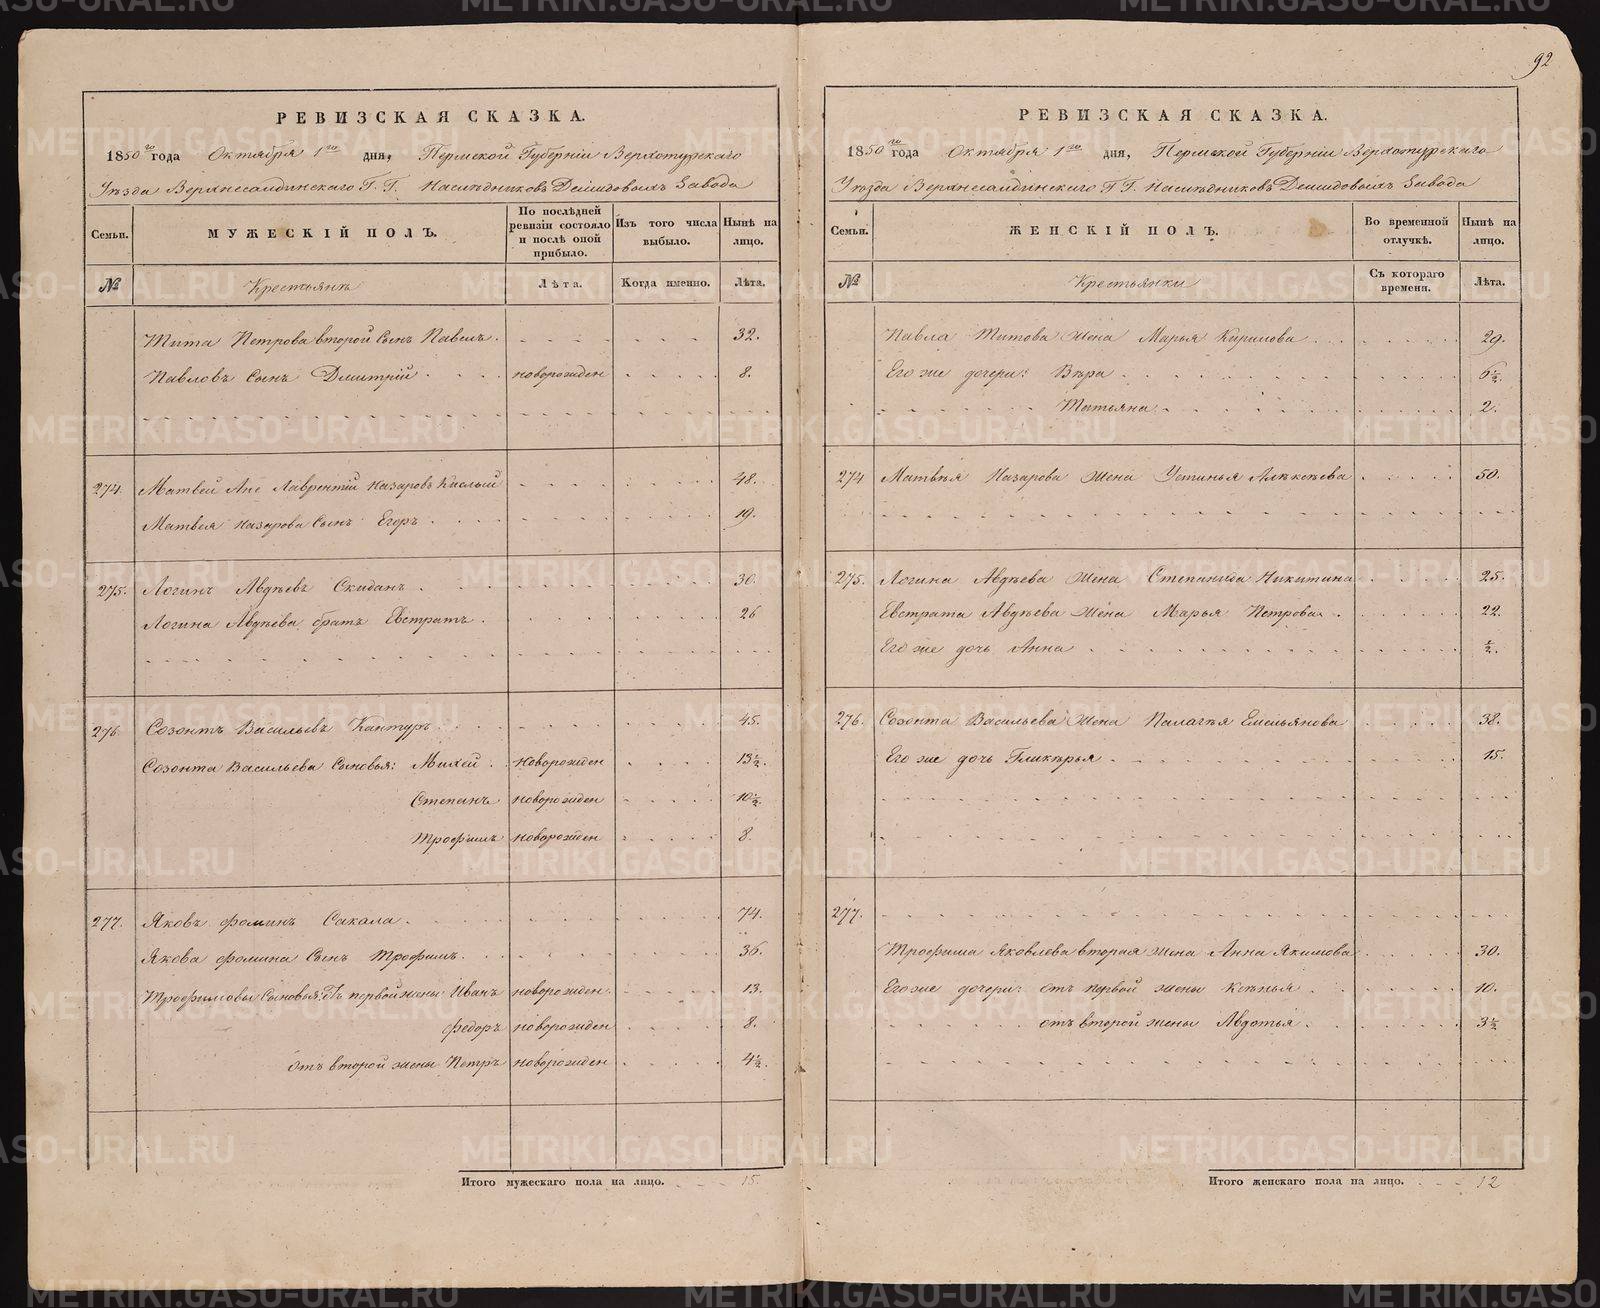 92
РЕВИЗСКАЯ СКАЗКА.
1850го года Октября 1го дня, Пермской Губерніи Верхотурскаго
Уѣзда Верхнесалдинскаго Г. Г. Наслѣдниковъ Демидовыхъ Завода
Семьи.
МУЖЕСКІЙ ПОЛЪ.
По послѣдней ревизіи состояло и послѣ оной прибыло.
Изъ того числа выбыло.
Нынѣ на лицо.
№ Крестьянъ Лѣта. Когда именно. Лѣта.
Тита Петрова второй Сынъ Павелъ. 32.
Павловъ Сынъ Дмитрій новорожден 8.
274. Матвей Лаврентій Назаровъ 48.
Матвея Назарова Сынъ Егоръ 19.
275. Логинъ Авдѣевъ Скиданъ 30.
Логина Авдѣева братъ Евстратъ 26
276. Созонтъ Васильевъ Кантуръ 45.
Созонта Васильева Сыновья: Михей новорожден 13 1/2.
Степанъ новорожден 10 1/2.
Трофимъ новорожден 8.
277. Яковъ Фоминъ Сакала 74.
Якова Фомина Сынъ Трофимъ. 36.
Трофимовы Сыновья: Отъ первой жены Иванъ новорожден 13.
Федоръ новорожден 8.
отъ второй жены Петръ новорожден 4 1/2.
Итого мужескаго пола на лицо. 15
РЕВИЗСКАЯ СКАЗКА.
1850го года Октября 1го дня, Пермской Губерніи Верхотурскаго
Уѣзда Верхнесалдинскаго Г Г. Наслѣдниковъ Демидовыхъ Завода
Семьи.
ЖЕНСКІЙ ПОЛЪ.
Во временной отлучкѣ.
Нынѣ на лицо.
№ Крестьянки Съ котораго времени. Лѣта.
Павла Титова Жена Марья Кирилова 29.
Его же дочери: Вѣра 6 1/2.
Татьяна 2.
274 Матвѣя Назарова Жена Устинья Алексѣева 50.
275. Логина Авдѣева Жена Степанида Никитина 25.
Евстрата Авдѣева Жена Марья Петрова 22.
Его же дочь Анна 1/2.
276. Созонта Васильева Жена Палагѣя Емельянова 38.
Его же дочь Гликѣрья 15.
277.
Трофима Яковлева вторая жена Анна Якимова 30.
Его же дочери: отъ первой жены Ксѣнья 10.
отъ второй жены Авдотья 3 1/2
Итого женскаго пола на лицо. 12
METRIKI.GASO-URAL.RU